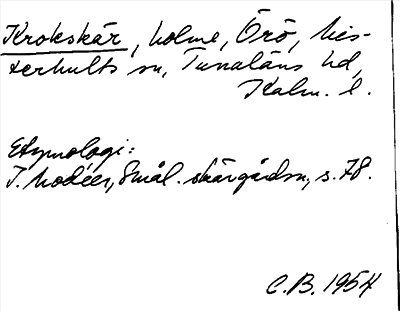 Krokskär, holme, Örö, Mis-
terhults sn, Tunaläns hd,
Kalm. l.
Etymologi:
I. Modéer, Smål. skärgårdsn, s. 78.
C.B. 1954